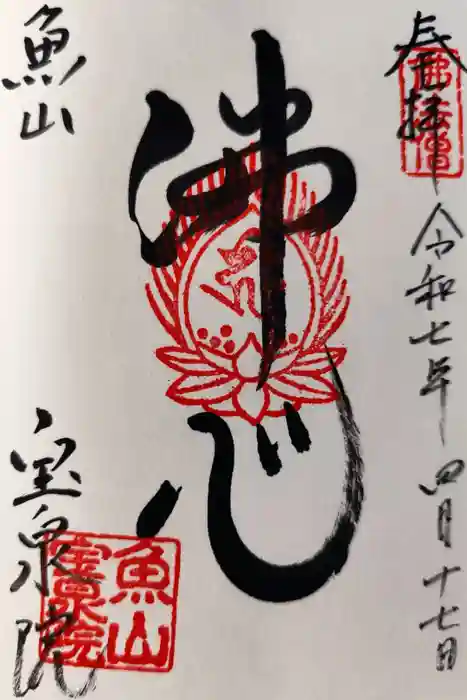 奉拝
令和七年四月十七日
佛法僧
佛心
魚山
宝泉院
魚山
宝泉院